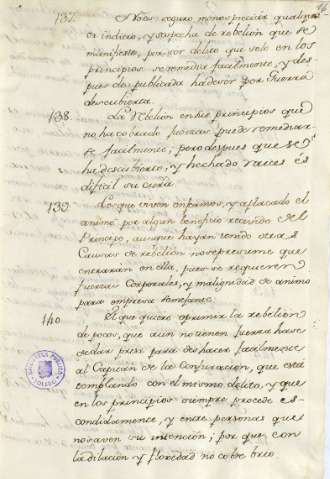 137. No es seguro menospreciar qualquier
or indicio, y sospecha de rebelion que se
manifieste, por ser delito que solo en los
principios se remedia facilmente, y des-
pues de publicada ha de ser por Guerra
descubierta.
138. La Rebelion en los principios que
no ha cobrado fuerzas puede remediar-
se facilmente, pero despues que se
ha descubierto, y hechado raices es
dificil su cura.
139. Los que viven enfermos, y aplacado el
animo por algun beneficio recivido del
Principe, aunque hayan tenido otras
Causas de rebelion no se presume que
entraran en ella, pues se requieren
fuerzas Corporales, y malignidad de animo
para empresa semejante.
140 El que quiere oprimir la rebelion
de pocos, que aun no tienen fuerzas ha de
se dar prisa para deshacer facilmente
al Capitan de la Conjuracion, que está
complando con el mismo delito, y que
en los principios siempre procede es-
condidamente, y entre personas que
no saven su intencion; por que con
la dilacion y floxedad no cobre brio
BIBLIOTECA PUBLICA
TOLEDO